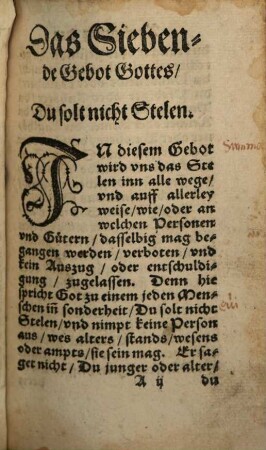 Das Sieben-
de Gebot Gottes/
Du solt nicht Stelen.
IN diesem Gebot
wird vns das Ste
len inn alle wege/
vnd auff allerley
weise/wie/oder an
welchen Personen
vnd Gütern/dasselbig mag be-
gangen werden/verboten/vnd
kein Auszug/oder entschuldi-
gung/zugelassen. Denn hie
spricht Got zu einem jeden Men-
schen iñ sonderheit/Du solt nicht
Stelen/vnd nimpt keine Person
aus/wes alters/stands/wesens
oder ampts/sie sein mag. Er sa-
get nicht/Du junger oder alter/
A ij du